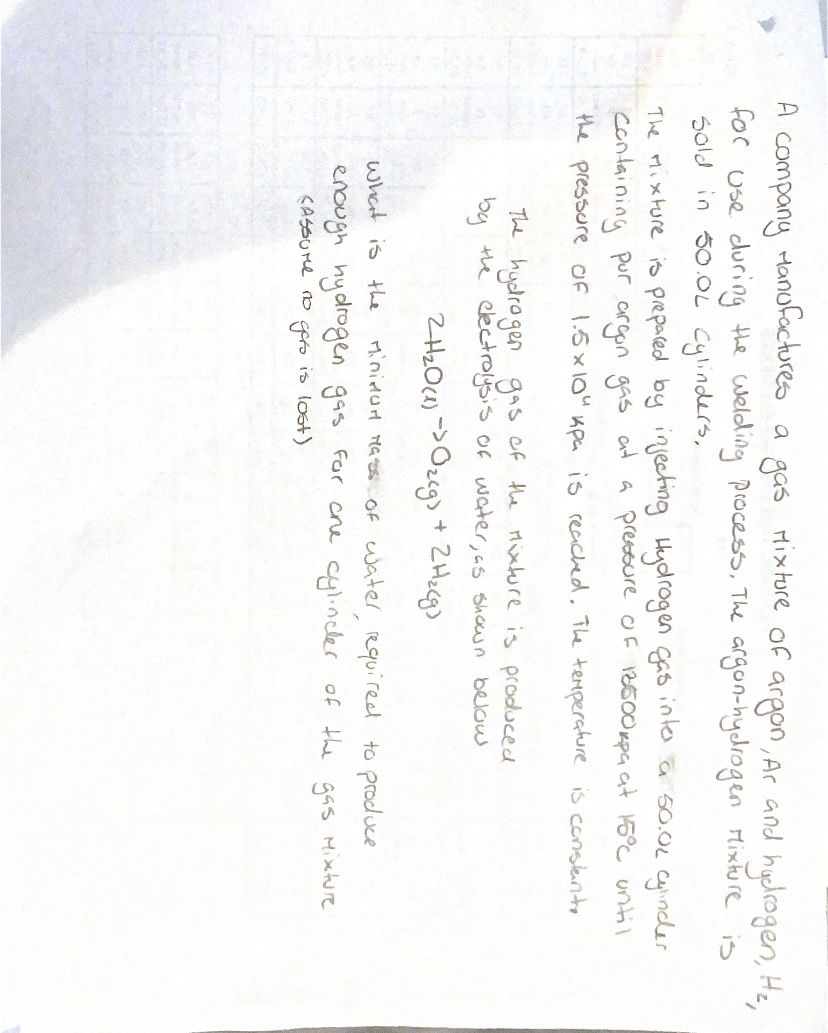 A company Manufactures a gas Mixture of argon, Ar and hydrogen, H₂,
for use during the welding process. The argon-hydrogen Mixture is
sold in 50.0L cylinders.
The Mixture is prepared by injecting Hydrogen gas into a 50.0L cylinder
containing pur argon gas at a pressure of 12500 kpa at 15°C until
the pressure of 1.5 x 10⁴ kpa is reached. The temperature is constant.
The hydrogen gas of the Mixture is produced
by the electrolysis of water, as shown below
2H₂O(l) -> O₂(g) + 2H₂(g)
What is the Minimum Mass of water required to produce
enough hydrogen gas for one cylinder of the gas Mixture
(Assume no gas is lost)